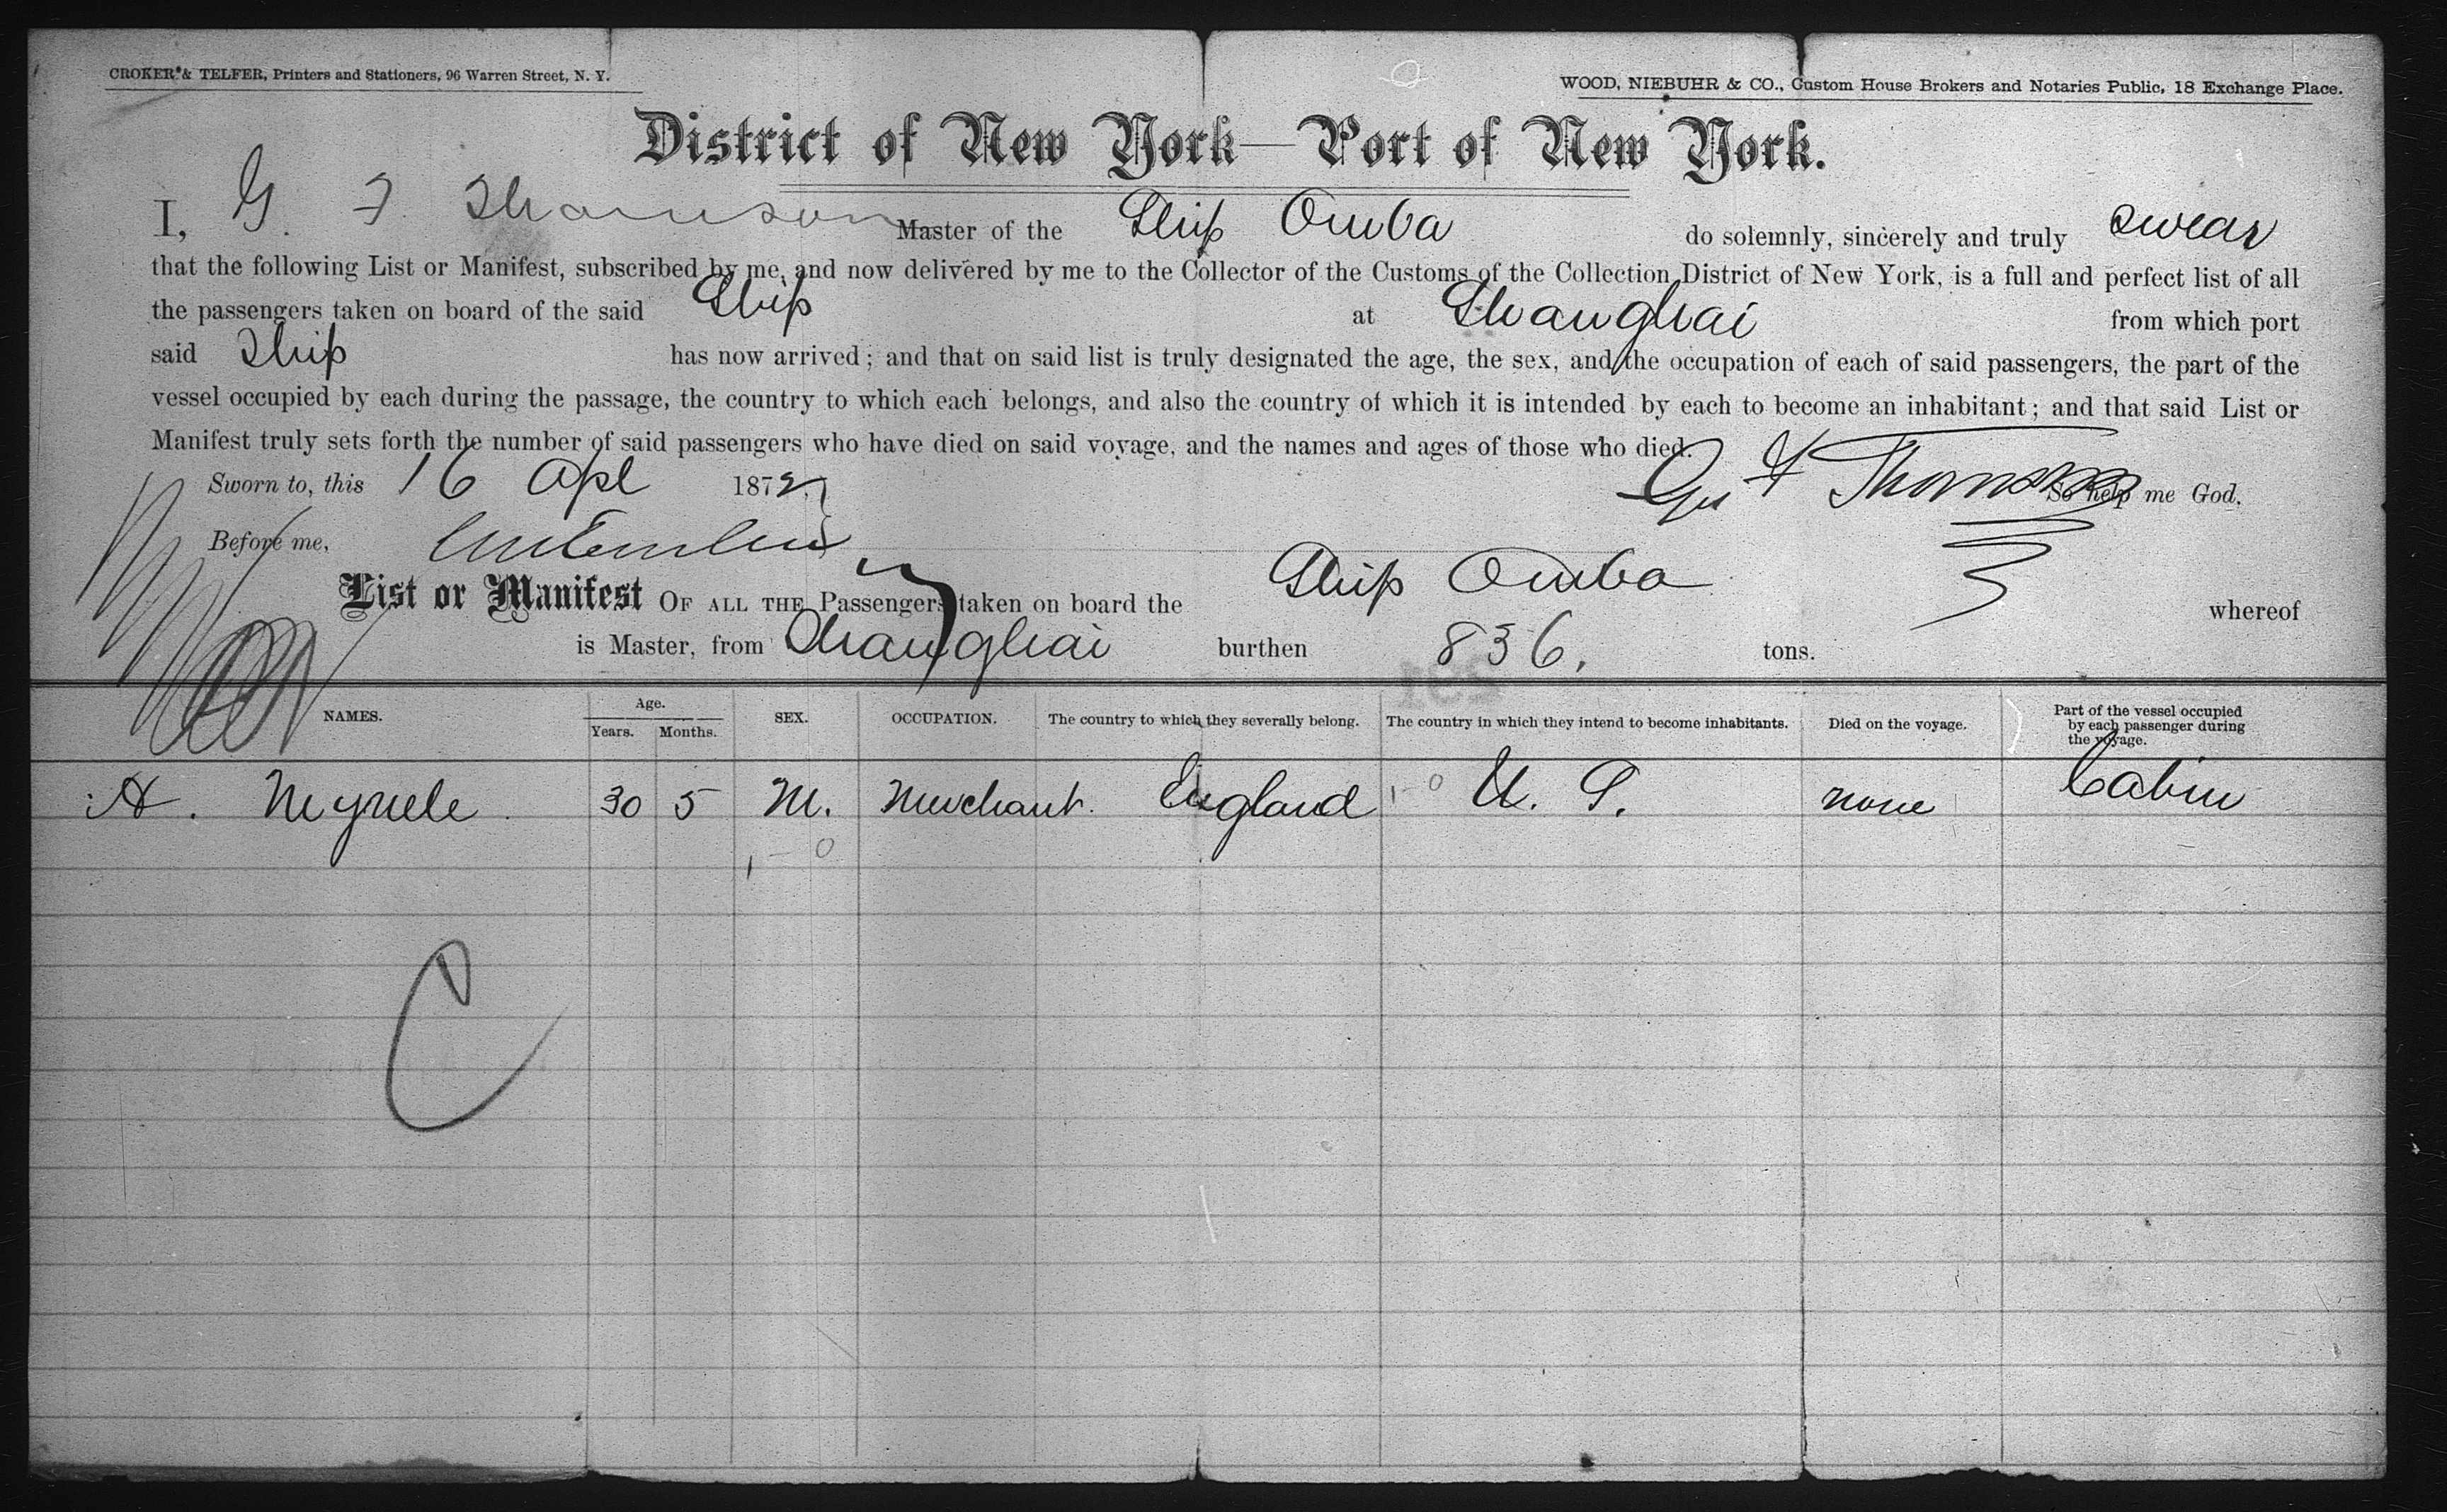 CROKER & TELFER, Printers and Stationers, 96 Warren Street, N. Y.
WOOD, NIEBUHR & CO., Custom House Brokers and Notaries Public, 18 Exchange Place.
District of New York—Port of New York.
I, G. F. Thomson Master of the Ship Omba do solemnly, sincerely and truly swear
that the following List or Manifest, subscribed by me, and now delivered by me to the Collector of the Customs of the Collection District of New York, is a full and perfect list of all
the passengers taken on board of the said Ship at Shanghai from which port
said Ship has now arrived; and that on said list is truly designated the age, the sex, and the occupation of each of said passengers, the part of the
vessel occupied by each during the passage, the country to which each belongs, and also the country of which it is intended by each to become an inhabitant; and that said List or
Manifest truly sets forth the number of said passengers who have died on said voyage, and the names and ages of those who died.
Sworn to, this 16 Apl 1872 Geo F Thomson So help me God.
Before me,
List or Manifest OF ALL THE Passengers taken on board the Ship Omba whereof
is Master, from Shanghai burthen 836. tons.
NAMES. Age. Years. Months. SEX. OCCUPATION. The country to which they severally belong. The country in which they intend to become inhabitants. Died on the voyage. Part of the vessel occupied by each passenger during the voyage.
A. 30 5 M. Merchant. England 1-0 U. S. none Cabin
1-0
C